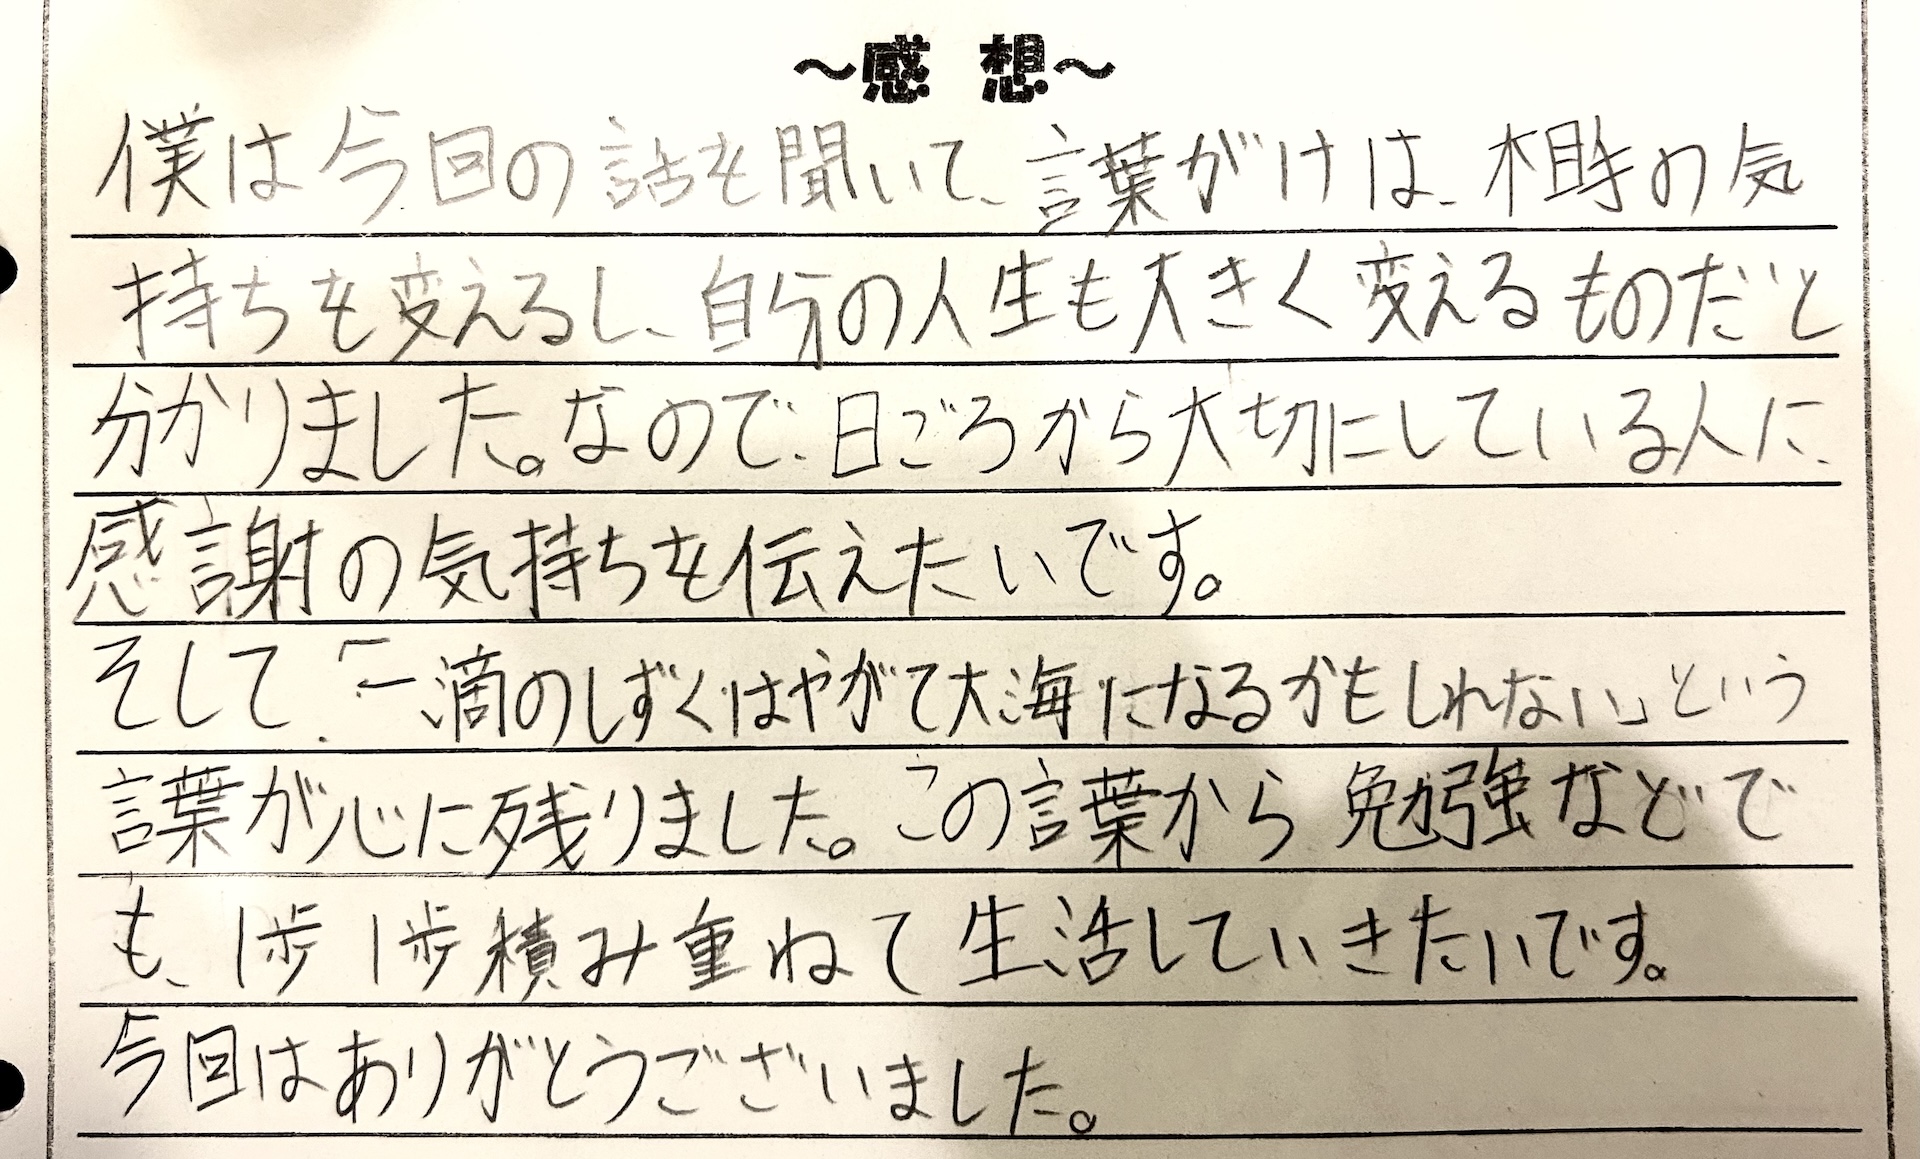 ～感 想～
僕は今回の話を聞いて、言葉がけは、相手の気
持ちを変えるし、自分の人生も大きく変えるものだと
分かりました。なので、日ごろから大切にしている人に、
感謝の気持ちを伝えたいです。
そして、「一滴のしずくはやがて大海になるかもしれない」という
言葉が心に残りました。この言葉から勉強などで
も、1歩1歩積み重ねて生活していきたいです。
今回はありがとうございました。